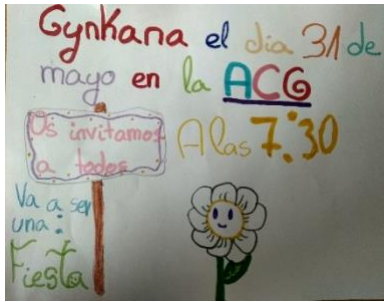 Gynkana el dia 31 de
mayo en la ACG
Os invitamos
a todos
A las 7:30
Va a ser
una:
Fiesta